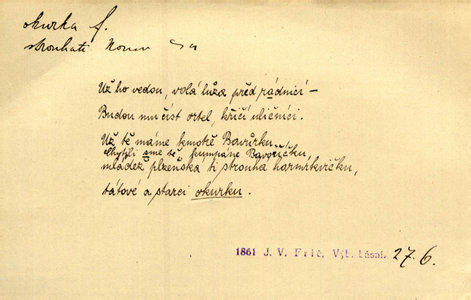 okurka f.
strouhati komu
Už ho vedou, volá lůza před rádnicí –
Budou mu číst ortel, křičí uličníci.
Už tě máme kmotře Bavůrku,
chytli sme tě kumpáne Bavoříčku,
mládež plzeňská ti strouhá harmrkvičku,
tátové a starci okurku.
1861 J. V. Frič, Výb. básní. 27.6.